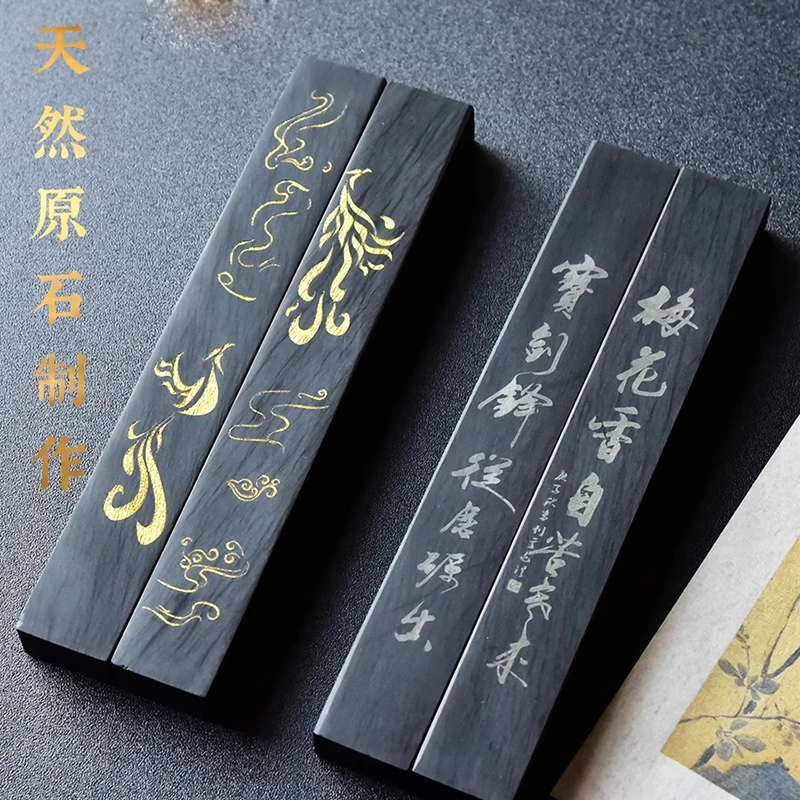 天然原石制作
梅花香自苦寒来
寶劍鋒從磨礪出